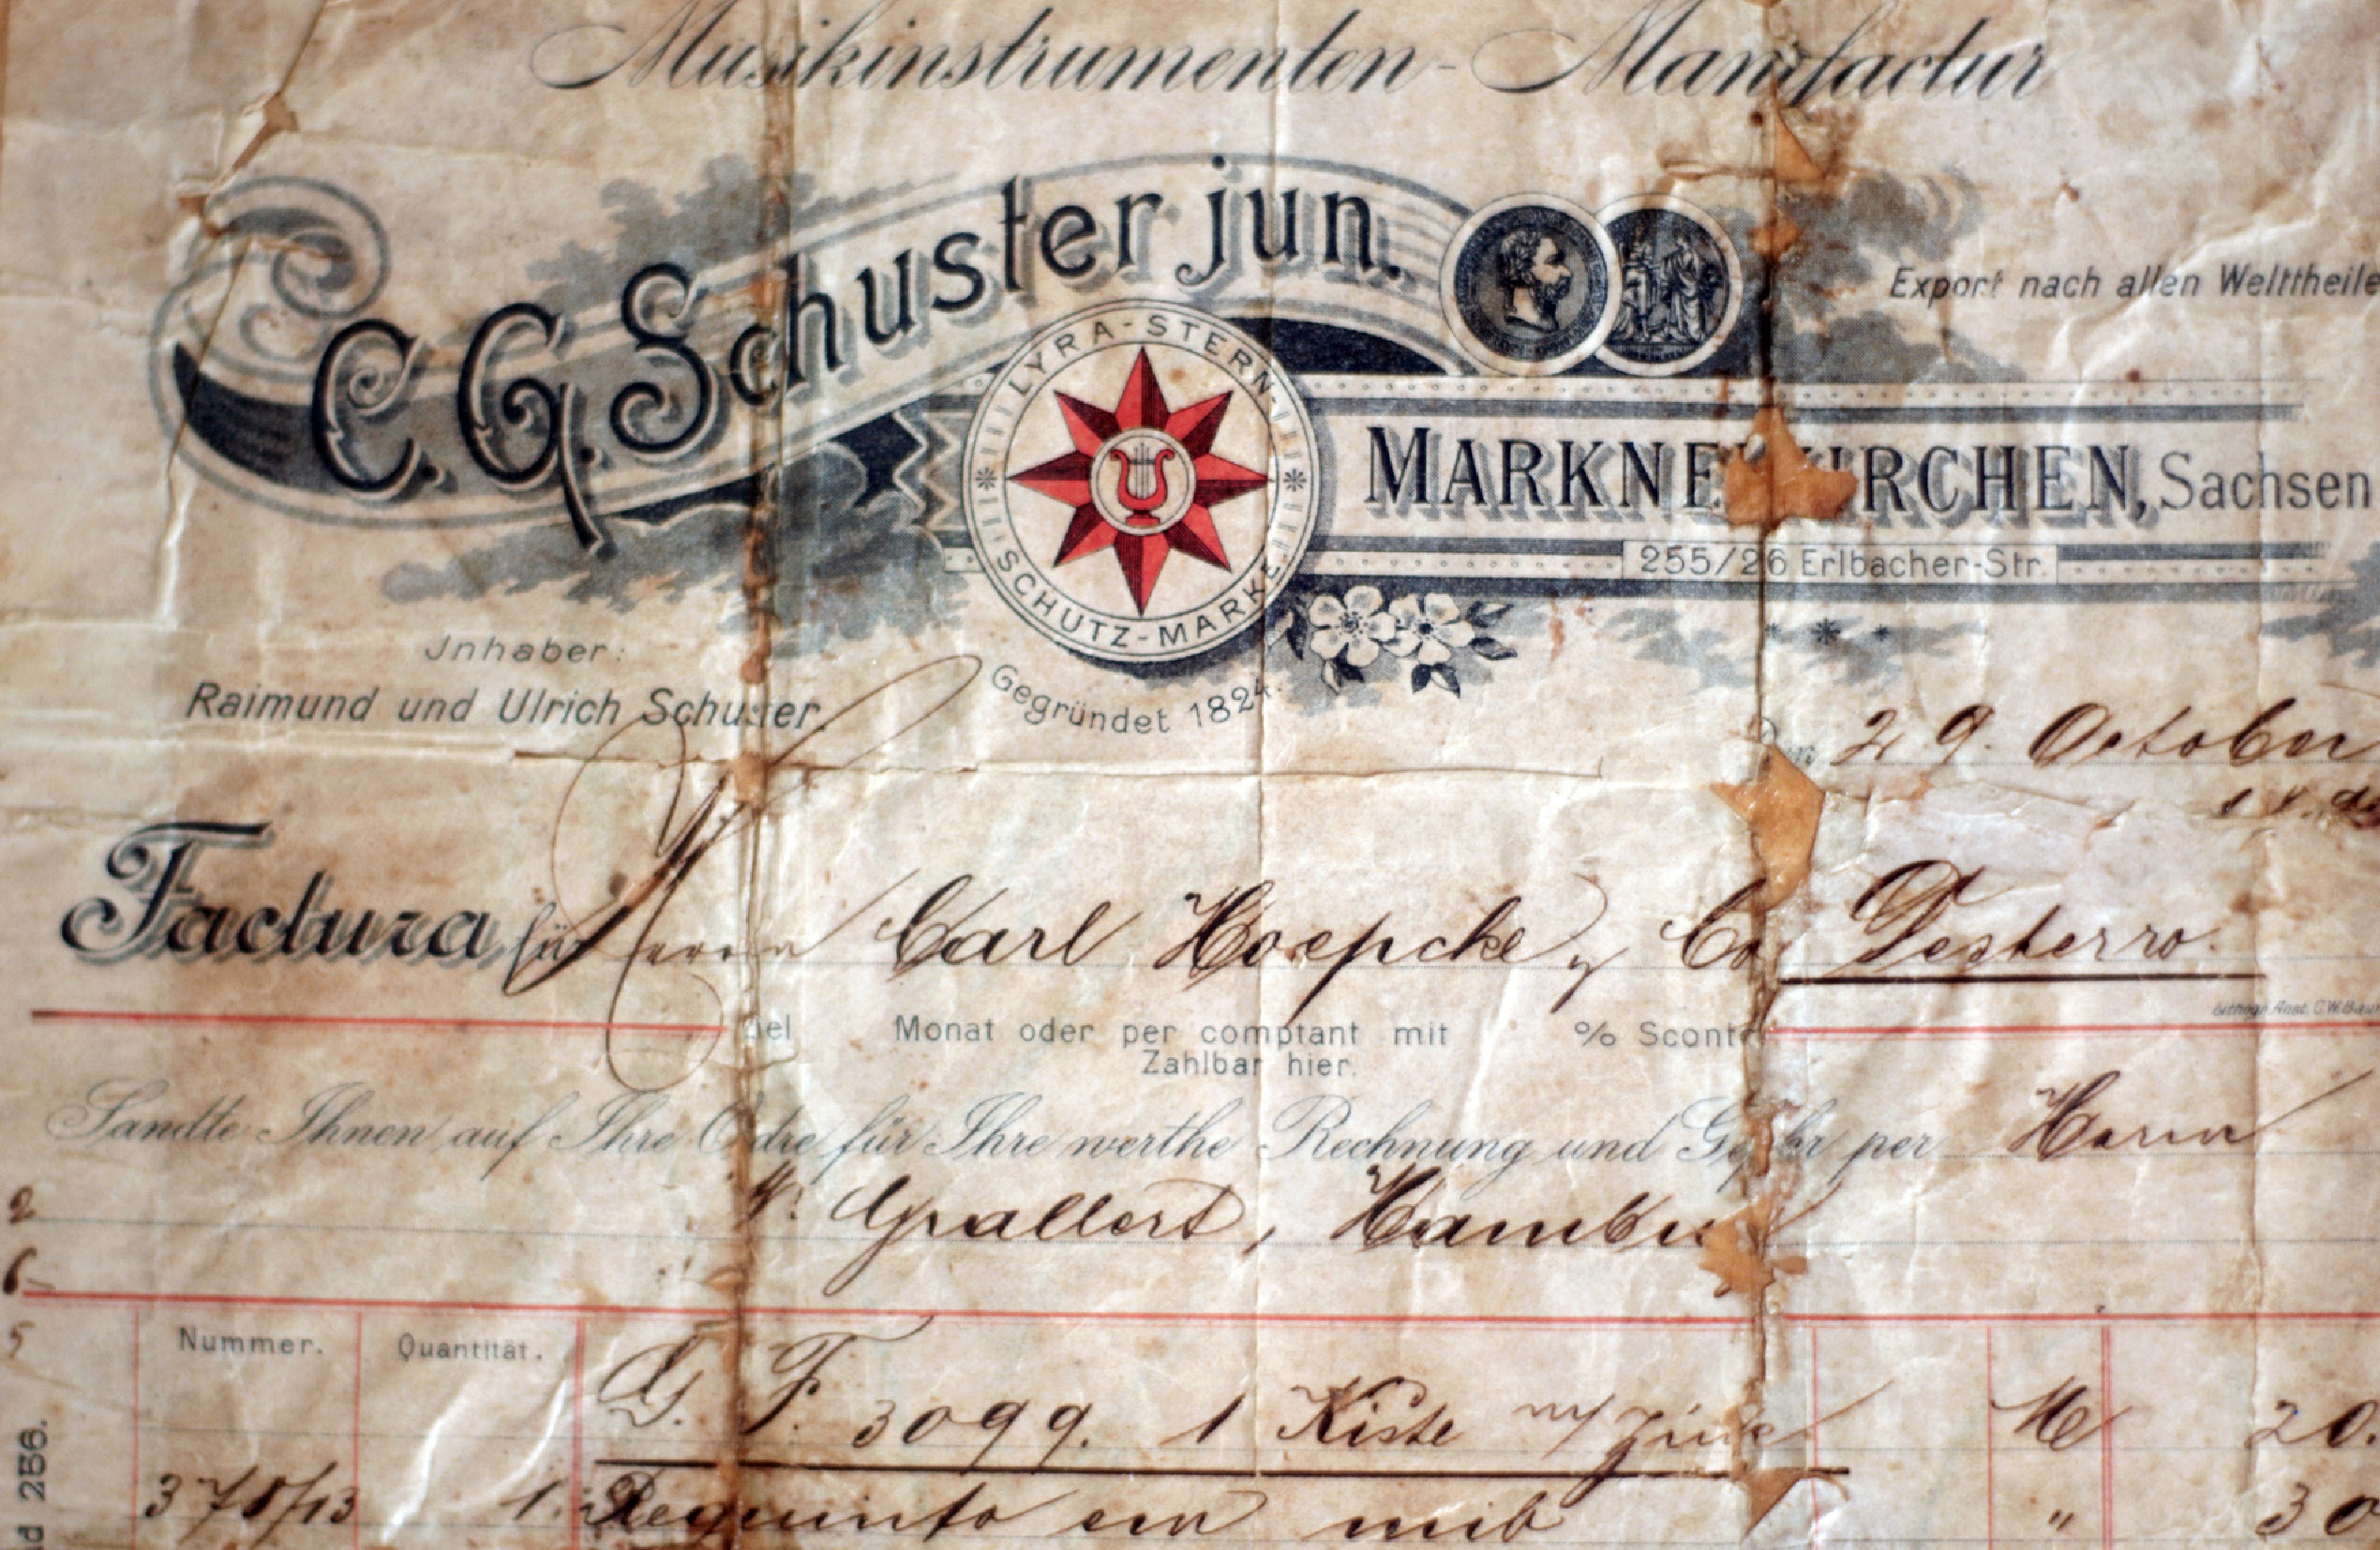 Musikinstrumenten-Manufactur
C. G. Schuster jun.
Export nach allen Welttheile
LYRA-STERN
SCHUTZ-MARKE
MARKNEUKIRCHEN, Sachsen
255/26 Erlbacher-Str.
Inhaber:
Raimund und Ulrich Schuster.
Gegründet 1824.
29. October
Factura für Herrn Carl Hoepcke y Co Desterro.
Ziel Monat oder per comptant mit % Sconto
Zahlbar hier.
Sandte Ihnen auf Ihre Ordre für Ihre werthe Rechnung und Gefahr per Herrn
Grallert, Hambu
Nummer. Quantität.
G. F. 3099. 1 Kiste M 20.
1. Requinto em mib " 30
256.